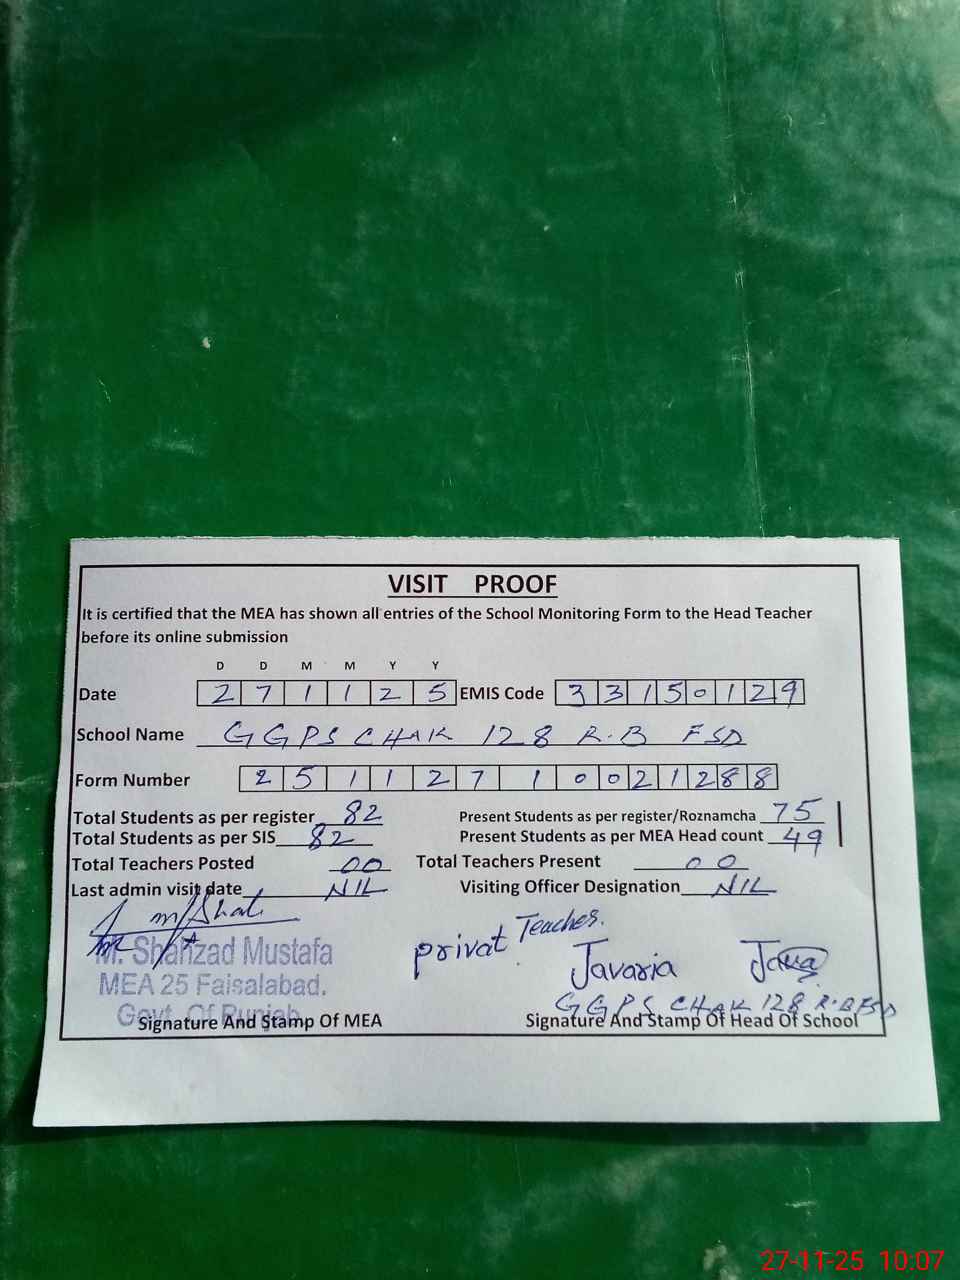 VISIT PROOF
It is certified that the MEA has shown all entries of the School Monitoring Form to the Head Teacher
before its online submission
D D M M Y Y
Date 2 7 1 1 2 5 EMIS Code 3 3 1 5 0 1 2 9
School Name GGPS CHAK 128 R.B FSD
Form Number 2 5 1 1 2 7 1 0 0 2 1 2 8 8
Total Students as per register 82 Present Students as per register/Roznamcha 75
Total Students as per SIS 82 Present Students as per MEA Head count 49
Total Teachers Posted 00 Total Teachers Present 00
Last admin visit date NIL Visiting Officer Designation NIL
privat Teacher.
M. Shahzad Mustafa Javaria
MEA 25 Faisalabad.
Govt. Of Punjab GGPS CHAK 128 R.B FSD
Signature And Stamp Of MEA Signature And Stamp Of Head Of School
27-11-25 10:07